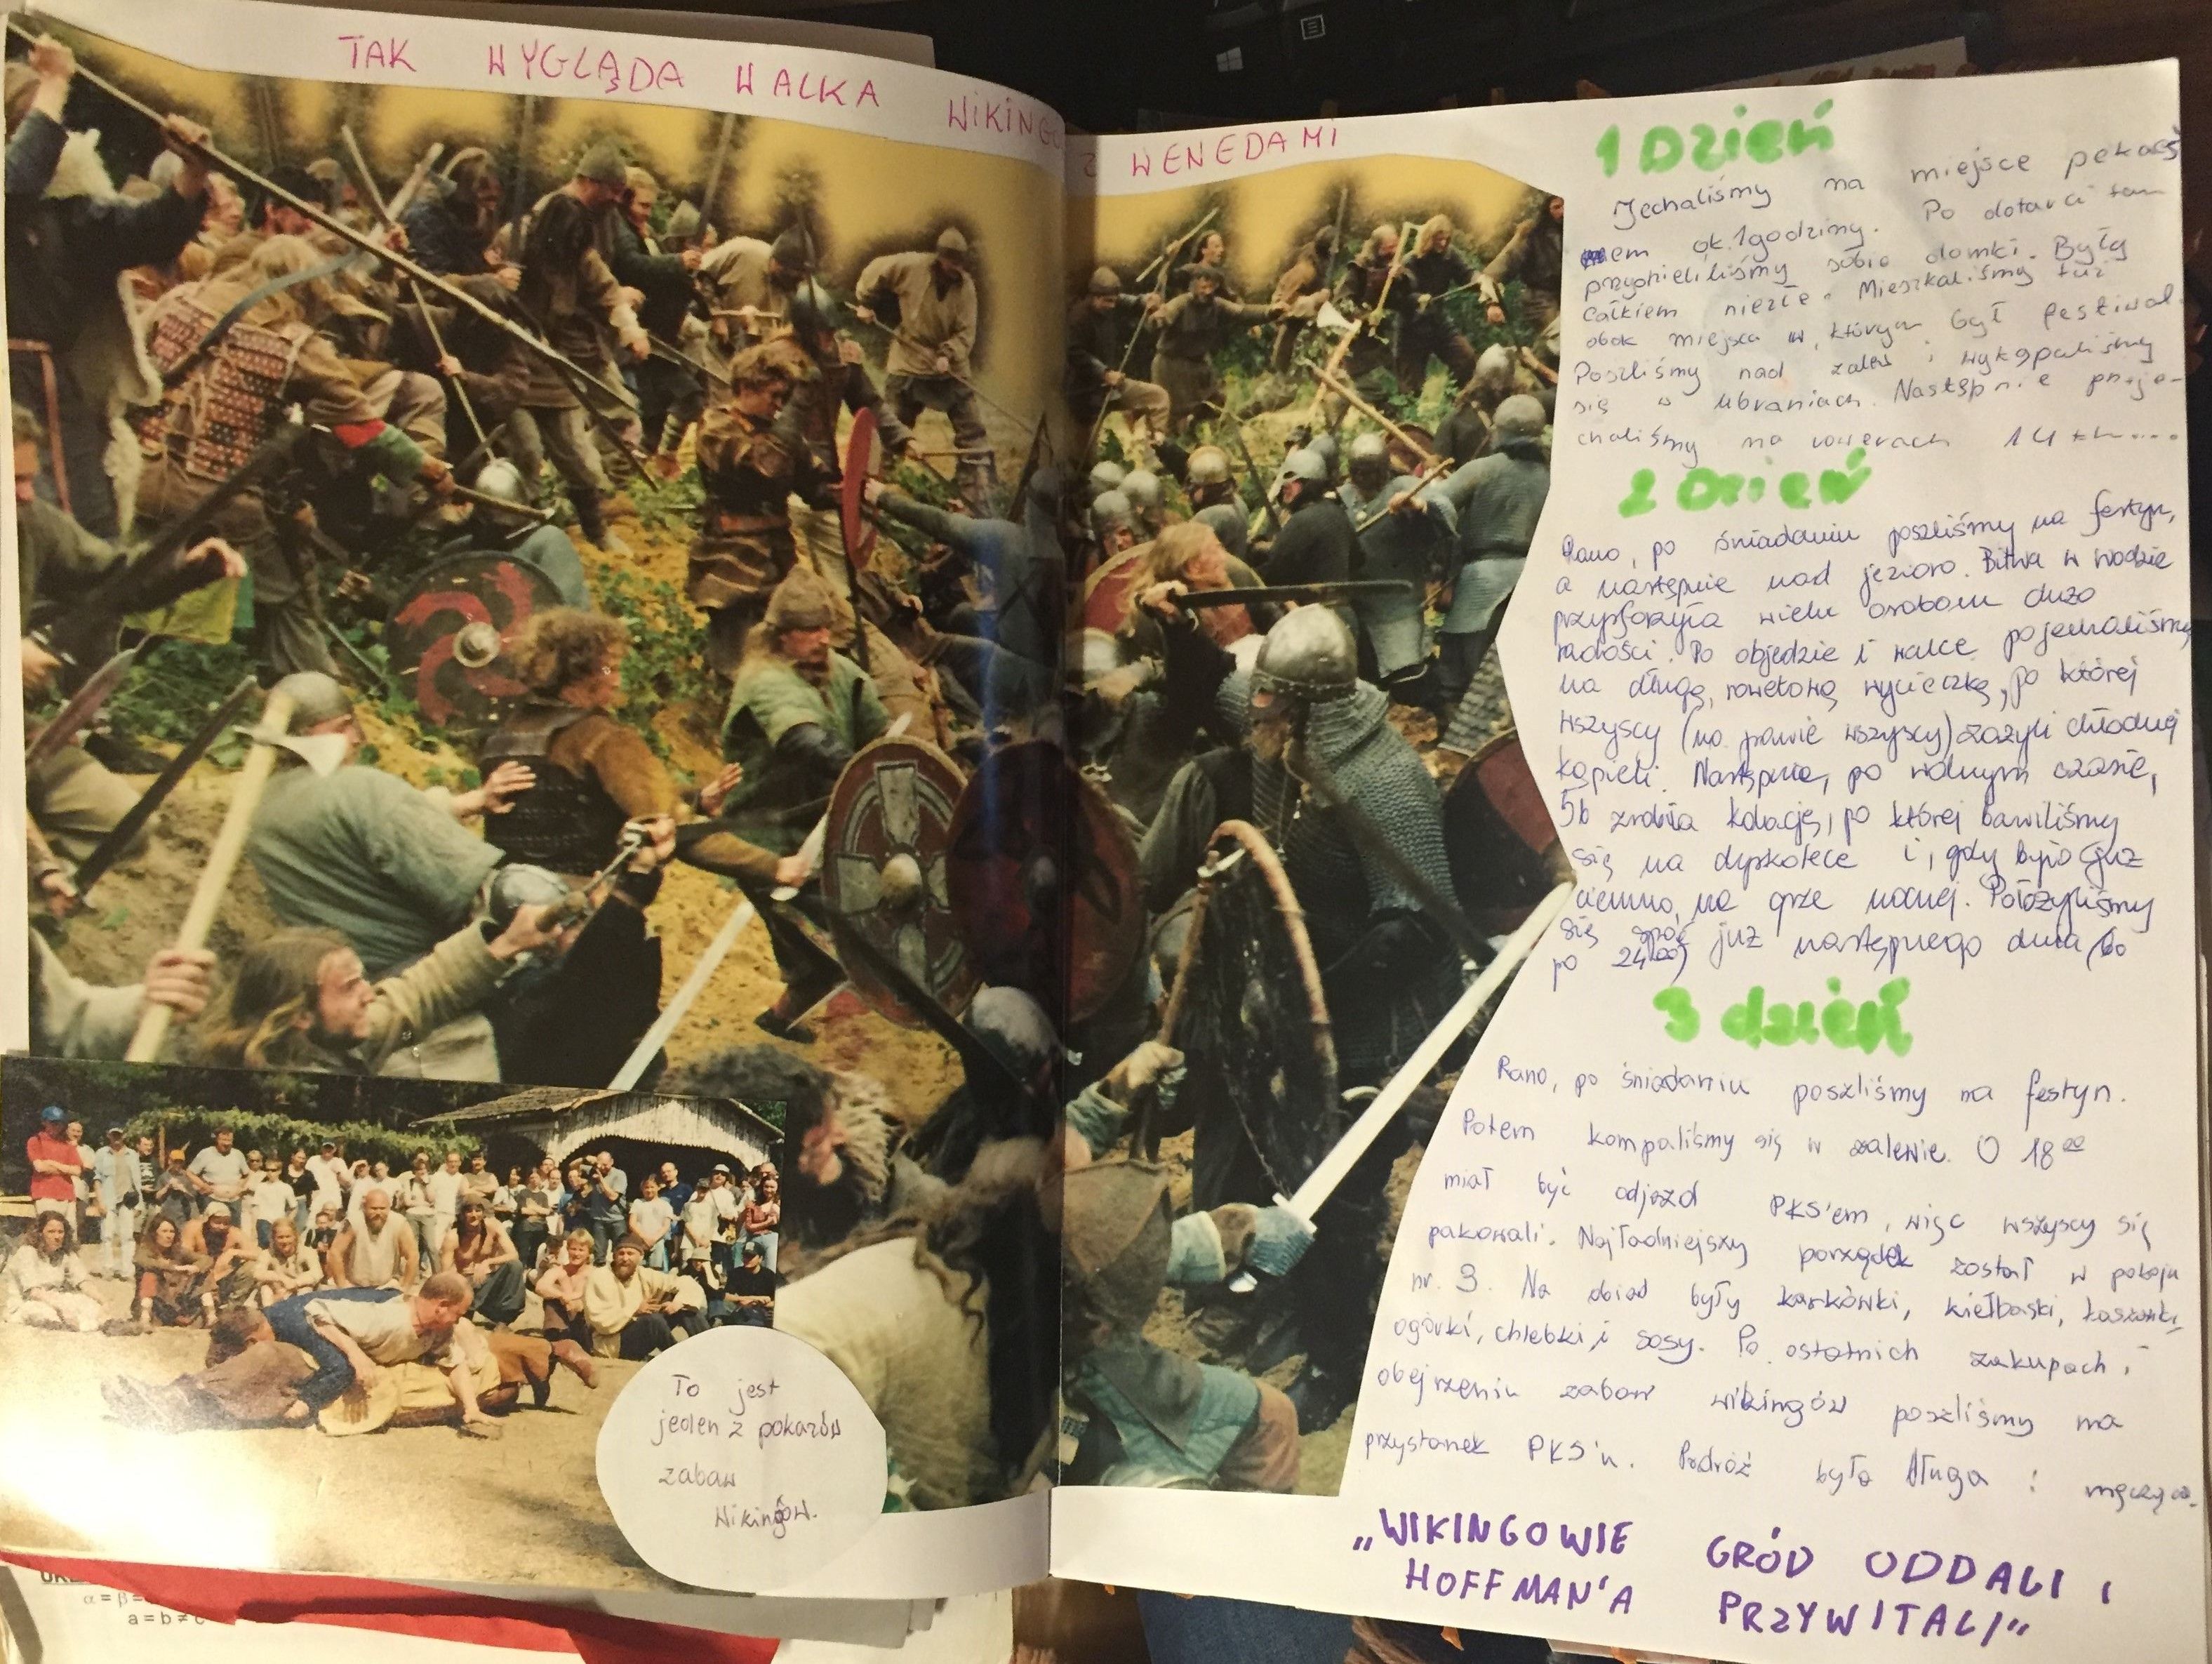 TAK WYGLĄDA WALKA WIKINGÓ Z WENEDAMI
1 Dzień
Jechaliśmy na miejsce pekaeś
em ok. 1 godziny. Po dotarci tam
przydzieliliśmy sobie domki. Były
całkiem niezłe. Mieszkaliśmy tuż
obok miejsca w którym był festiwal.
Poszliśmy nad zalew i wykąpaliśmy
się w ubraniach. Następnie przeje-
chaliśmy na rowerach 14 km....
2 Dzień
Rano, po śniadaniu poszliśmy na festyn,
a następnie nad jezioro. Bitwa w wodzie
przysporzyła wielu osobom dużo
radości. Po objedzie i walce pojechaliśmy
na długą, rowerową wycieczkę, po której
wszyscy (no prawie wszyscy) zażyli chłodnej
kąpieli. Następnie, po wolnym czasie,
5b zrobiła kolację, po której bawiliśmy
się na dyskotece i, gdy było już
ciemno, na grze nocnej. Położyliśmy
się spać już następnego dnia (bo
po 24:00)
3 dzień
Rano, po śniadaniu poszliśmy na festyn.
Potem kompaliśmy się w zalewie. O 18 00
miał być odjazd PKS'em, więc wszyscy się
pakowali. Najładniejszy porządek został w pokoju
nr. 3. Na obiad były karkówki, kiełbaski, kaszanki,
ogórki, chlebki i sosy. Po ostatnich zakupach i
obejrzeniu zabaw wikingów poszliśmy na
przystanek PKS'u. Podróż była długa i męcząca.
„WIKINGOWIE GRÓD ODDALI I
HOFFMAN'A PRZYWITALI"
To jest
jeden z pokazów
zabaw
Wikingów.
a = b ≠ c